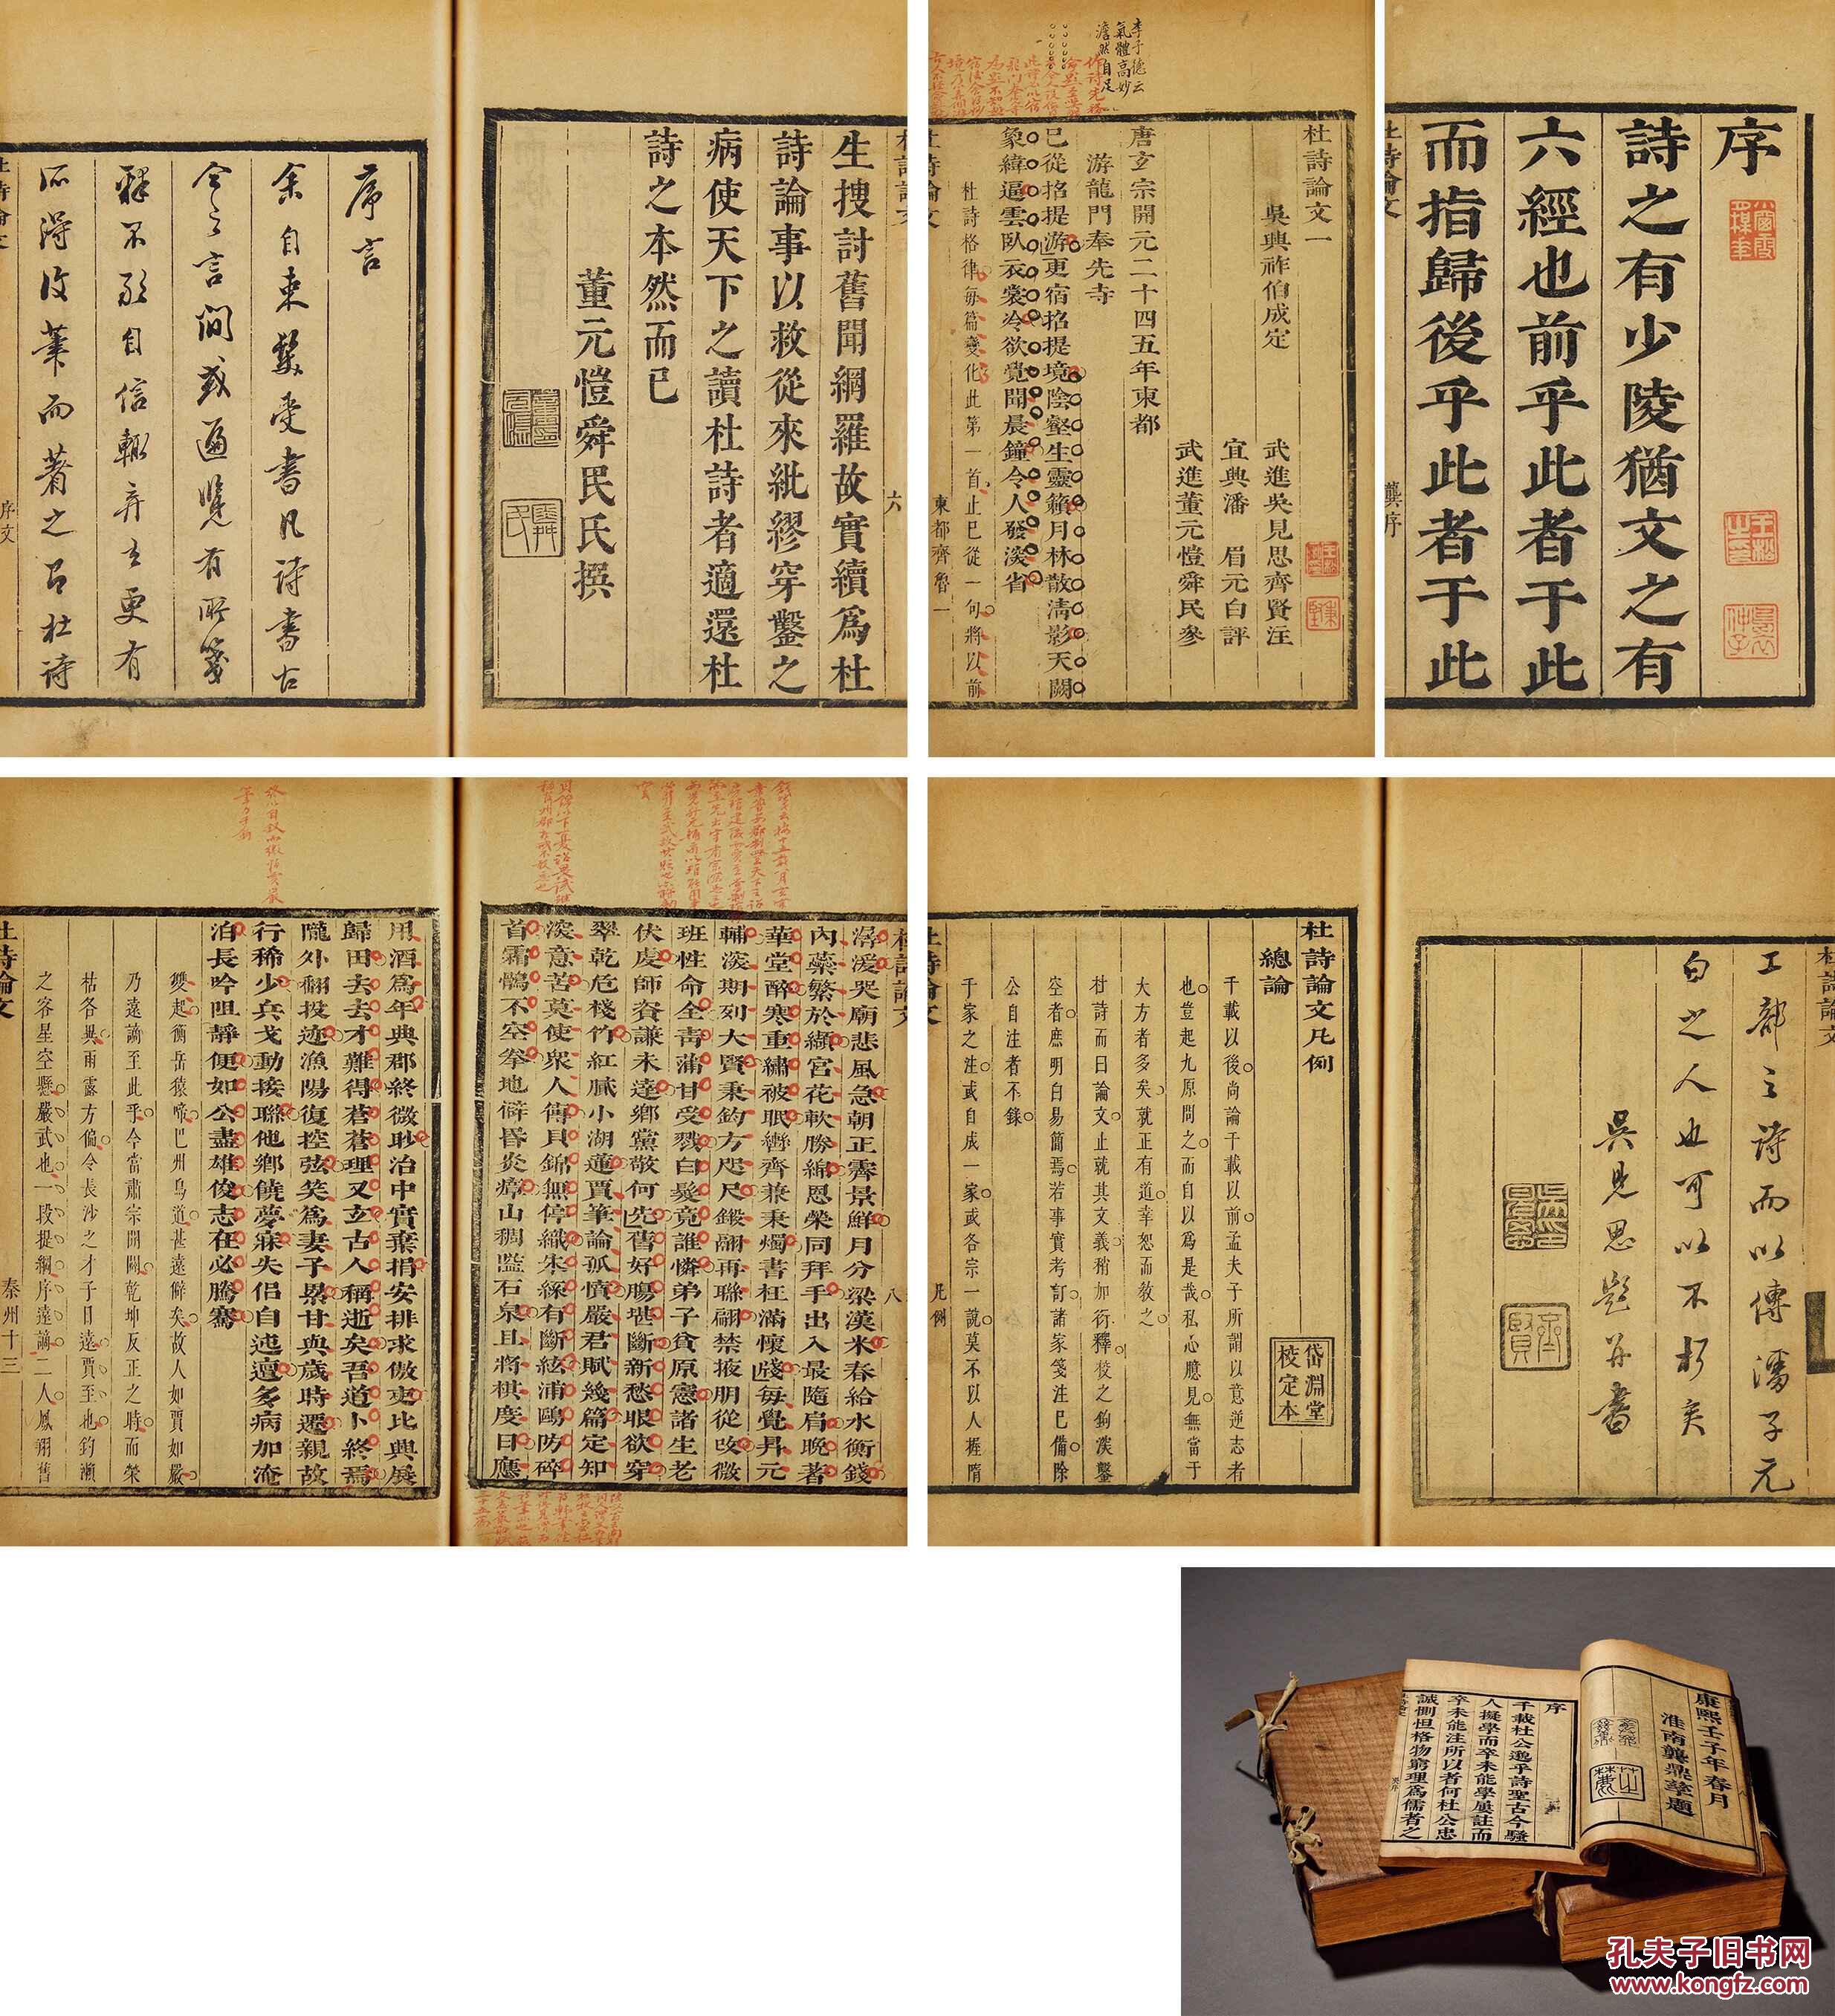 序
詩之有少陵猶文之有
六經也前乎此者于此
而指歸後乎此者于此
杜詩論文
龔序
李子德云
氣體高妙
澹然自足
杜詩論文一
吳興祚伯成定
武進吳見思齊賢注
宜興潘　眉元白評
武進董元愷舜民參
唐玄宗開元二十四五年東都
游龍門奉先寺
已從招提游更宿招提境陰壑生靈籟月林散清影天闕
象緯逼雲臥衣裳冷欲覺聞晨鐘令人發深省
杜詩格律每篇變化此第一首止已從一句將以前
杜詩論文
東都齊魯一
杜詩論文
六
生捜討舊聞網羅故實續爲杜
詩論事以救從來紕繆穿鑿之
病使天下之讀杜詩者適還杜
詩之本然而已
董元愷舜民氏撰
序言
余自束髮受書凡詩書古
今之言間或遍覽有所箋
釋不敢自信輒弃去更有
所得改筆而著之呂杜詩
杜詩論文
序文
杜詩論文
工部之詩而以傳潘子元
白之人也可以不朽矣
吳見思題并書
杜詩論文凡例
岱淵堂
校定本
總論
千載以後尚論千載以前孟夫子所謂以意逆志者
也豈起九原問之而自以爲是哉私心臆見無當于
大方者多矣就正有道幸恕而教之
杜詩而曰論文止就其文義稍加衍釋校之鉤深鑿
空者庶明白易簡焉若事實考訂諸家箋注已備除
公自注者不錄
于家之注或自成一家或各宗一說莫不以人握隋
杜詩論文
凡例
杜詩論文
八
潺湲哭廟悲風急朝正霽景鮮月分梁漢米春給水衡錢
內蘂繁於纈宮花軟勝綿恩榮同拜手出入最隨肩晚著
華堂醉寒重繡被眠轡齊兼秉燭書枉滿懷牋每覺昇元
輔深期列大賢秉鈞方咫尺鎩翮再聯翩禁掖朋從改微
班性命全青蒲甘受戮白髮竟誰憐弟子貧原憲諸生老
伏虔師資謙未達鄉黨敬何先舊好腸堪斷新愁眼欲穿
翠乾危棧竹紅膩小湖蓮賈筆論孤憤嚴君賦幾篇定知
深意苦莫使衆人傳貝錦無停織朱絲有斷絃浦鷗防碎
首霜鶻不空拳地僻昏炎瘴山稠隘石泉且將棋度日應
用酒爲年典郡終微眇治中實棄捐安排求傲吏比興展
歸田去去才難得蒼蒼理又玄古人稱逝矣吾道卜終焉
隴外翻投迹漁陽復控弦笑爲妻子累甘與歲時遷親故
行稀少兵戈動接聯他鄉饒夢寐失侶自迍邅多病加淹
泊長吟阻靜便如公盡雄俊志在必騰騫
雙起衡岳猿啼巴州鳥道甚遠僻矣故人如賈如嚴
乃遠謫至此乎今當肅宗開關乾坤反正之時而榮
枯各異雨露方偏令長沙之才子日遠賈至也釣瀨
之客星空懸嚴武也一段提綱序遠謫二人鳳翔舊
杜詩論文
秦州十三
康熙壬子年春月
淮南龔鼎孳題
序
千載杜公邈乎詩聖古今騷
人擬學而卒未能學屢註而
卒未能注所以者何杜公忠
誠惻怛格物窮理爲儒者之
孔夫子旧书网
www.kongfz.com